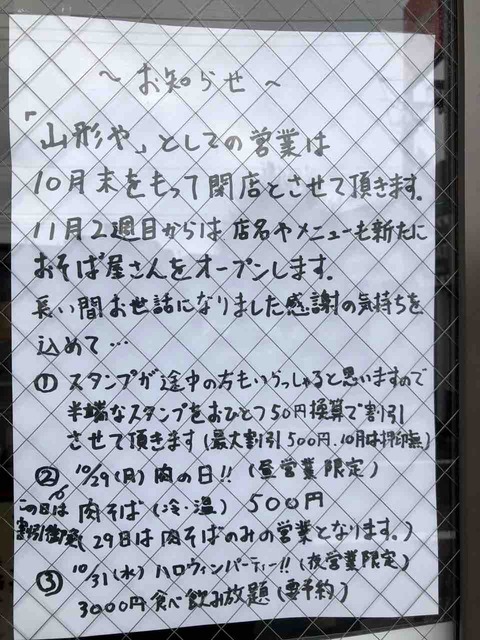 ～お知らせ～
「山形や」としての営業は
10月末をもって閉店とさせて頂きます。
11月2週目からは 店名やメニューも新たに
おそば屋さんをオープンします。
長い間お世話になりました感謝の気持ちを
込めて…
① スタンプが途中の方もいらっしゃると思いますので
半端なスタンプをおひとつ50円換算で割引
させて頂きます(最大割引500円、10月は押印無)
② 10/29(月) 肉の日!! (昼営業限定)
この日は 肉そば(冷・温) 500円
割引 29日は肉そばのみの営業となります。)
③ 10/31(水) ハロウィンパーティー!! (夜営業限定)
3000円 食べ飲み放題 (要予約)